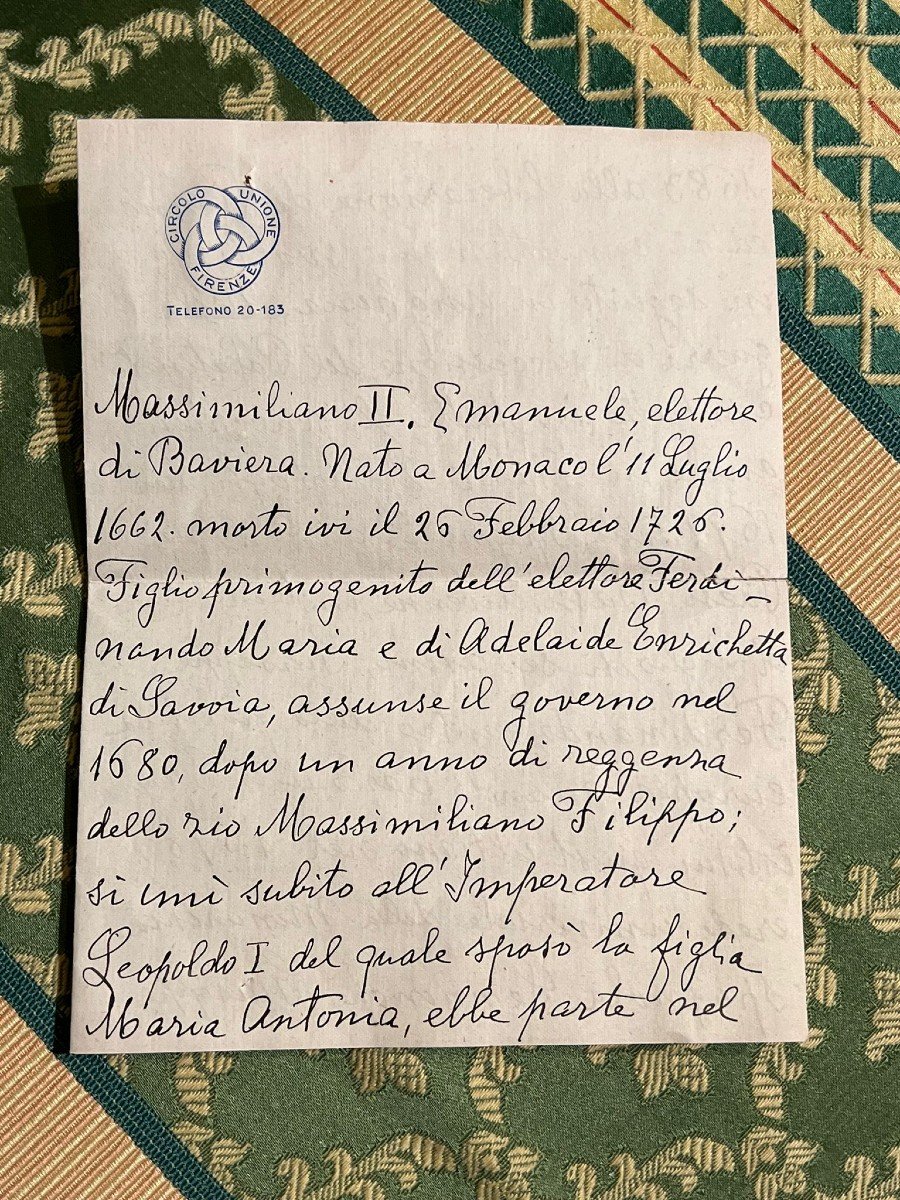 CIRCOLO UNIONE
FIRENZE
TELEFONO 20-183
Massimiliano II. Emanuele, elettore
di Baviera. Nato a Monaco l'11 Luglio
1662. morto ivi il 26 Febbraio 1726.
Figlio primogenito dell'elettore Ferdi_
nando Maria e di Adelaide Enrichetta
di Savoia, assunse il governo nel
1680, dopo un anno di reggenza
dello zio Massimiliano Filippo;
si unì subito all'Imperatore
Leopoldo I del quale sposò la figlia
Maria Antonia, ebbe parte nel